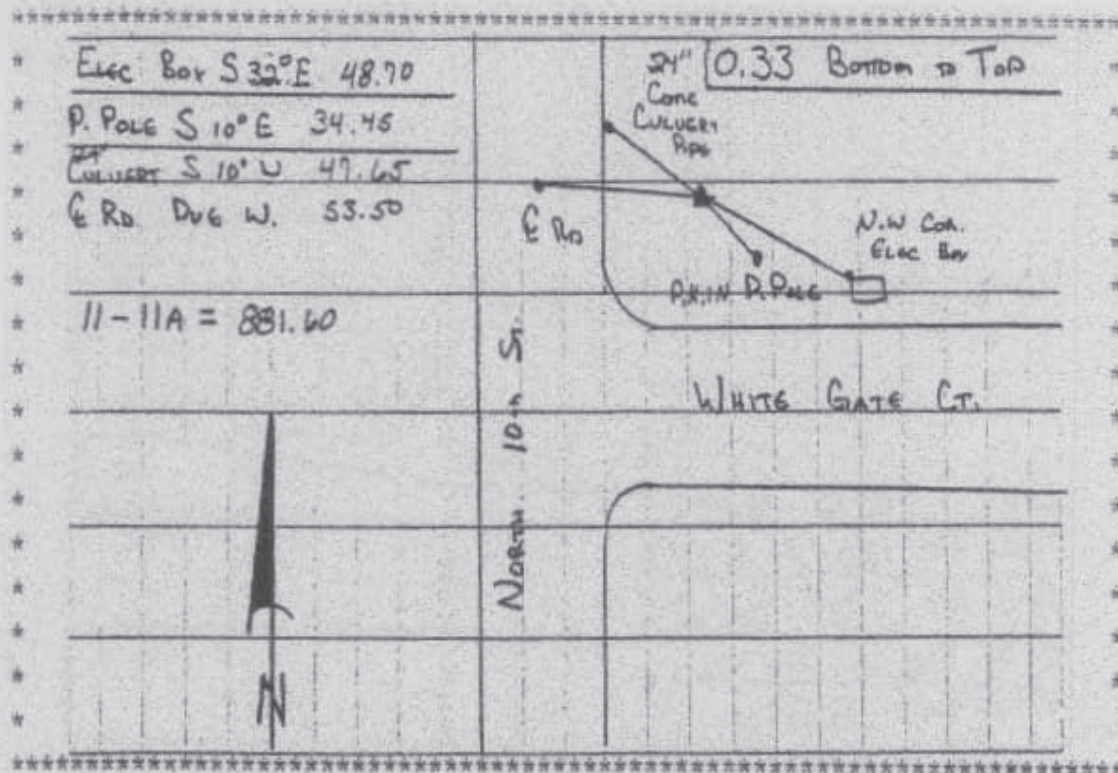 ELEC BOX S 32° E 48.70
P. POLE S 10° E 34.45
24" CULVERT S 10° W 47.65
℄ RD DUE W. 53.50
11-11A = 881.60
24"
CONC
CULVERT
PIPE
0.33 BOTTOM TO TOP
℄ RD
N.W COR.
ELEC BOX
P.K. IN P. POLE
NORTH 10th ST.
WHITE GATE CT.
N